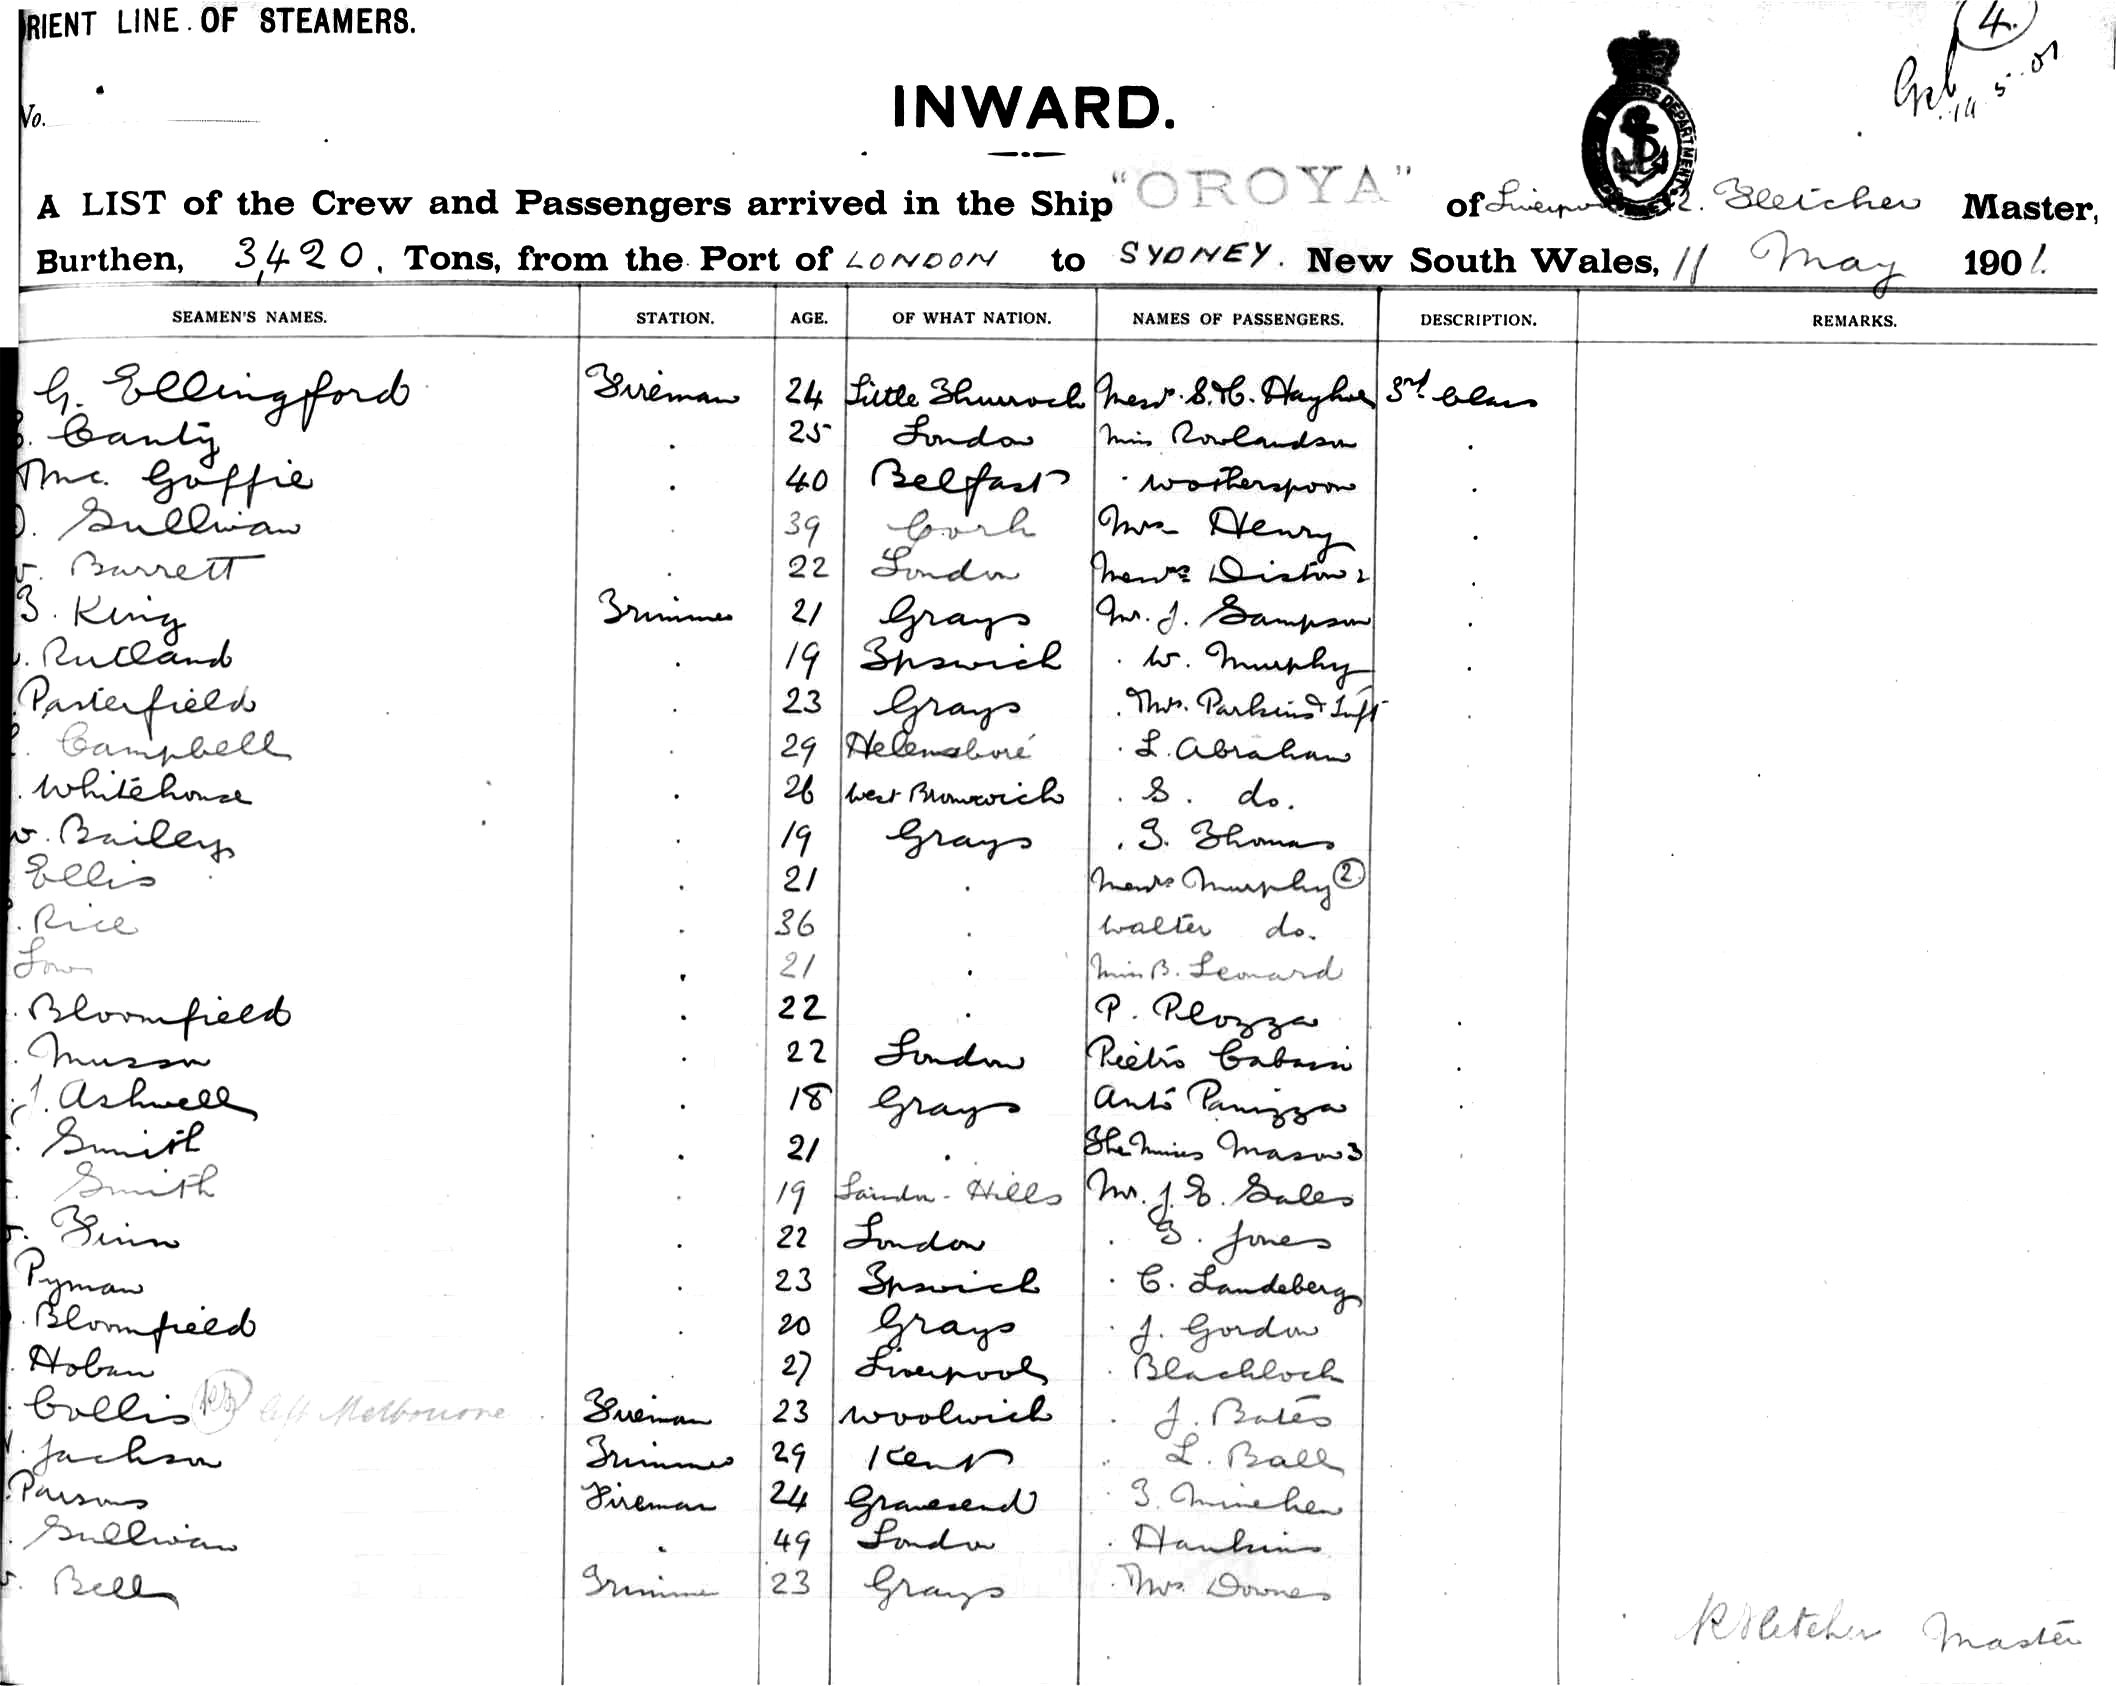 RIENT LINE OF STEAMERS.
4.
14.5.01
No.
INWARD.
A LIST of the Crew and Passengers arrived in the Ship "OROYA" of Liverpool Fletcher Master,
Burthen, 3,420. Tons, from the Port of LONDON to SYDNEY. New South Wales, 11 May 1901.
SEAMEN'S NAMES. STATION. AGE. OF WHAT NATION. NAMES OF PASSENGERS. DESCRIPTION. REMARKS.
G. Ellingford Fireman 24 Little Thurrock Messrs. S. H. 3rd Class
Canty . 25 London Miss Rowlandson .
Mc. Goffie . 40 Belfast . Wotherspoon .
Sullivan . 39 Cork Mrs Henry .
Barrett . 22 London Messrs Diston 2 .
T. King Trimmer 21 Grays Mr. J. Sampson .
Rutland . 19 Ipswich . W. Murphy .
Pasterfield . 23 Grays . Thos. Parkins & Inft .
Campbell . 29 . L. Abraham
Whitehouse . 26 West Bromwich . S. do.
W. Bailey . 19 Grays . T. Thomas
Ellis . 21 . Messrs Murphy 2
Rice . 36 . Walter do.
Low . 21 . Miss B. Leonard
Bloomfield . 22 . P. Plozza .
Musson . 22 London Pietro .
J. Ashwell . 18 Grays Anto Panizza .
Smith . 21 . The Misses Mason 3
Smith . 19 Laindon-Hills Mr. J. E. Sales
Finn . 22 London . T. Jones
Pyman . 23 Ipswich . C. Landeberg
Bloomfield . 20 Grays . J. Gordon
Hoban 27 Liverpool . Blacklock
Collis left Melbourne. Fireman 23 Woolwich . J. Bates
Jackson Trimmer 29 Kent . L. Ball
Parsons Fireman 24 Gravesend . T. Minehen
Sullivan . 49 London . Hankins
Bell Trimmer 23 Grays . Thos. Downes
R Fletcher Master